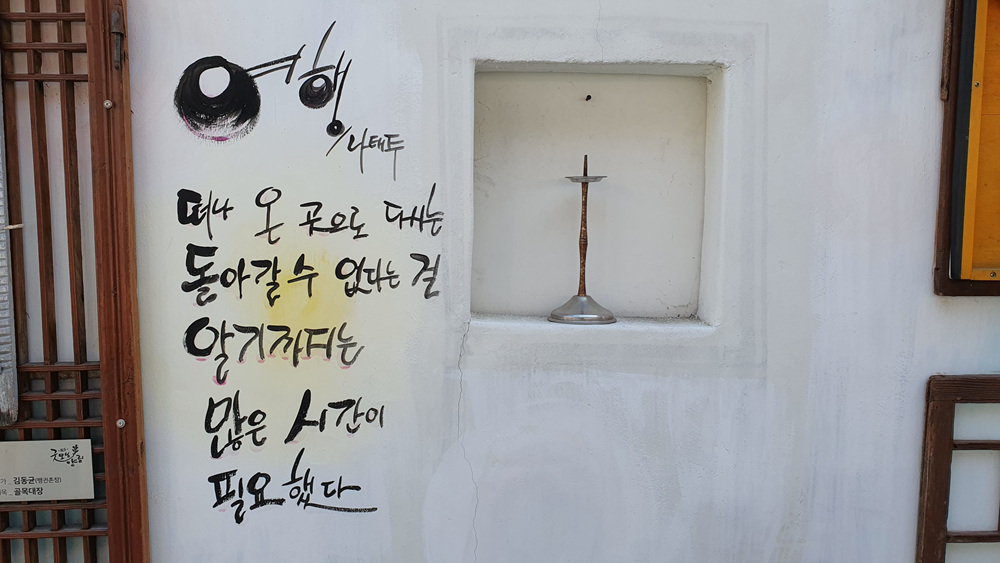 여행
나태주
떠나 온 곳으로 다시는
돌아갈 수 없다는 걸
알기까지는
많은 시간이
필요했다
김동균(벙건촌장)
골목대장